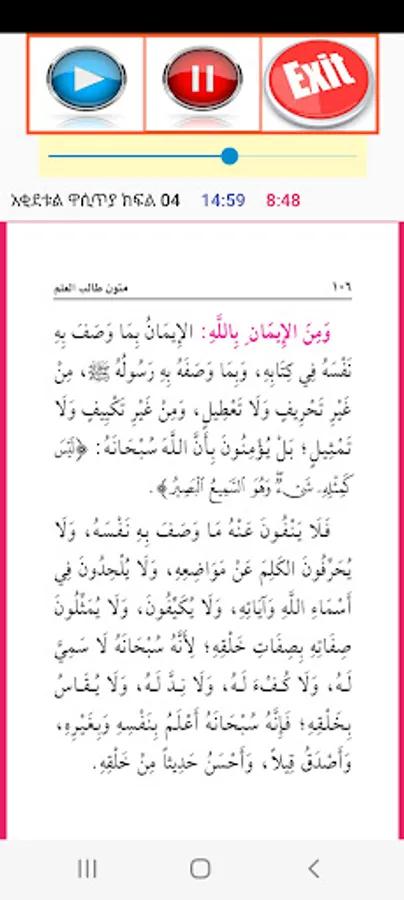 Exit
አቂደቱል ዋሲጥያ ክፍል 04 14:59 8:48
١٠٦ متون طالب العلم
وَمِنَ الإِيمَانِ بِاللَّهِ: الإِيمَانُ بِمَا وَصَفَ بِهِ
نَفْسَهُ فِي كِتَابِهِ، وَبِمَا وَصَفَهُ بِهِ رَسُولُهُ ﷺ، مِنْ
غَيْرِ تَحْرِيفٍ وَلَا تَعْطِيلٍ، وَمِنْ غَيْرِ تَكْيِيفٍ وَلَا
تَمْثِيلٍ؛ بَلْ يُؤْمِنُونَ بِأَنَّ اللَّهَ سُبْحَانَهُ: ﴿لَيْسَ
كَمِثْلِهِ شَيْءٌ وَهُوَ السَّمِيعُ الْبَصِيرُ﴾.
فَلَا يَنْفُونَ عَنْهُ مَا وَصَفَ بِهِ نَفْسَهُ، وَلَا
يُحَرِّفُونَ الكَلِمَ عَنْ مَوَاضِعِهِ، وَلَا يُلْحِدُونَ فِي
أَسْمَاءِ اللَّهِ وَآيَاتِهِ، وَلَا يُكَيِّفُونَ، وَلَا يُمَثِّلُونَ
صِفَاتِهِ بِصِفَاتِ خَلْقِهِ؛ لِأَنَّهُ سُبْحَانَهُ لَا سَمِيَّ
لَهُ، وَلَا كُفْءَ لَهُ، وَلَا نِدَّ لَهُ، وَلَا يُقَاسُ
بِخَلْقِهِ؛ فَإِنَّهُ سُبْحَانَهُ أَعْلَمُ بِنَفْسِهِ وَبِغَيْرِهِ،
وَأَصْدَقُ قِيلاً، وَأَحْسَنُ حَدِيثاً مِنْ خَلْقِهِ.